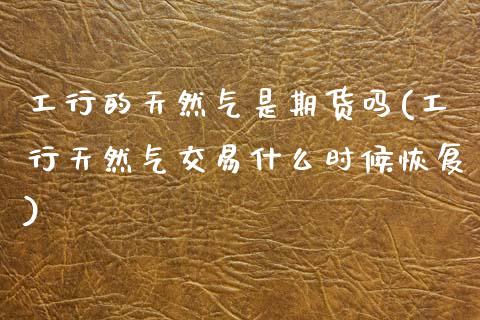 工行的天然气是期货吗(工
行天然气交易什么时候恢复
)